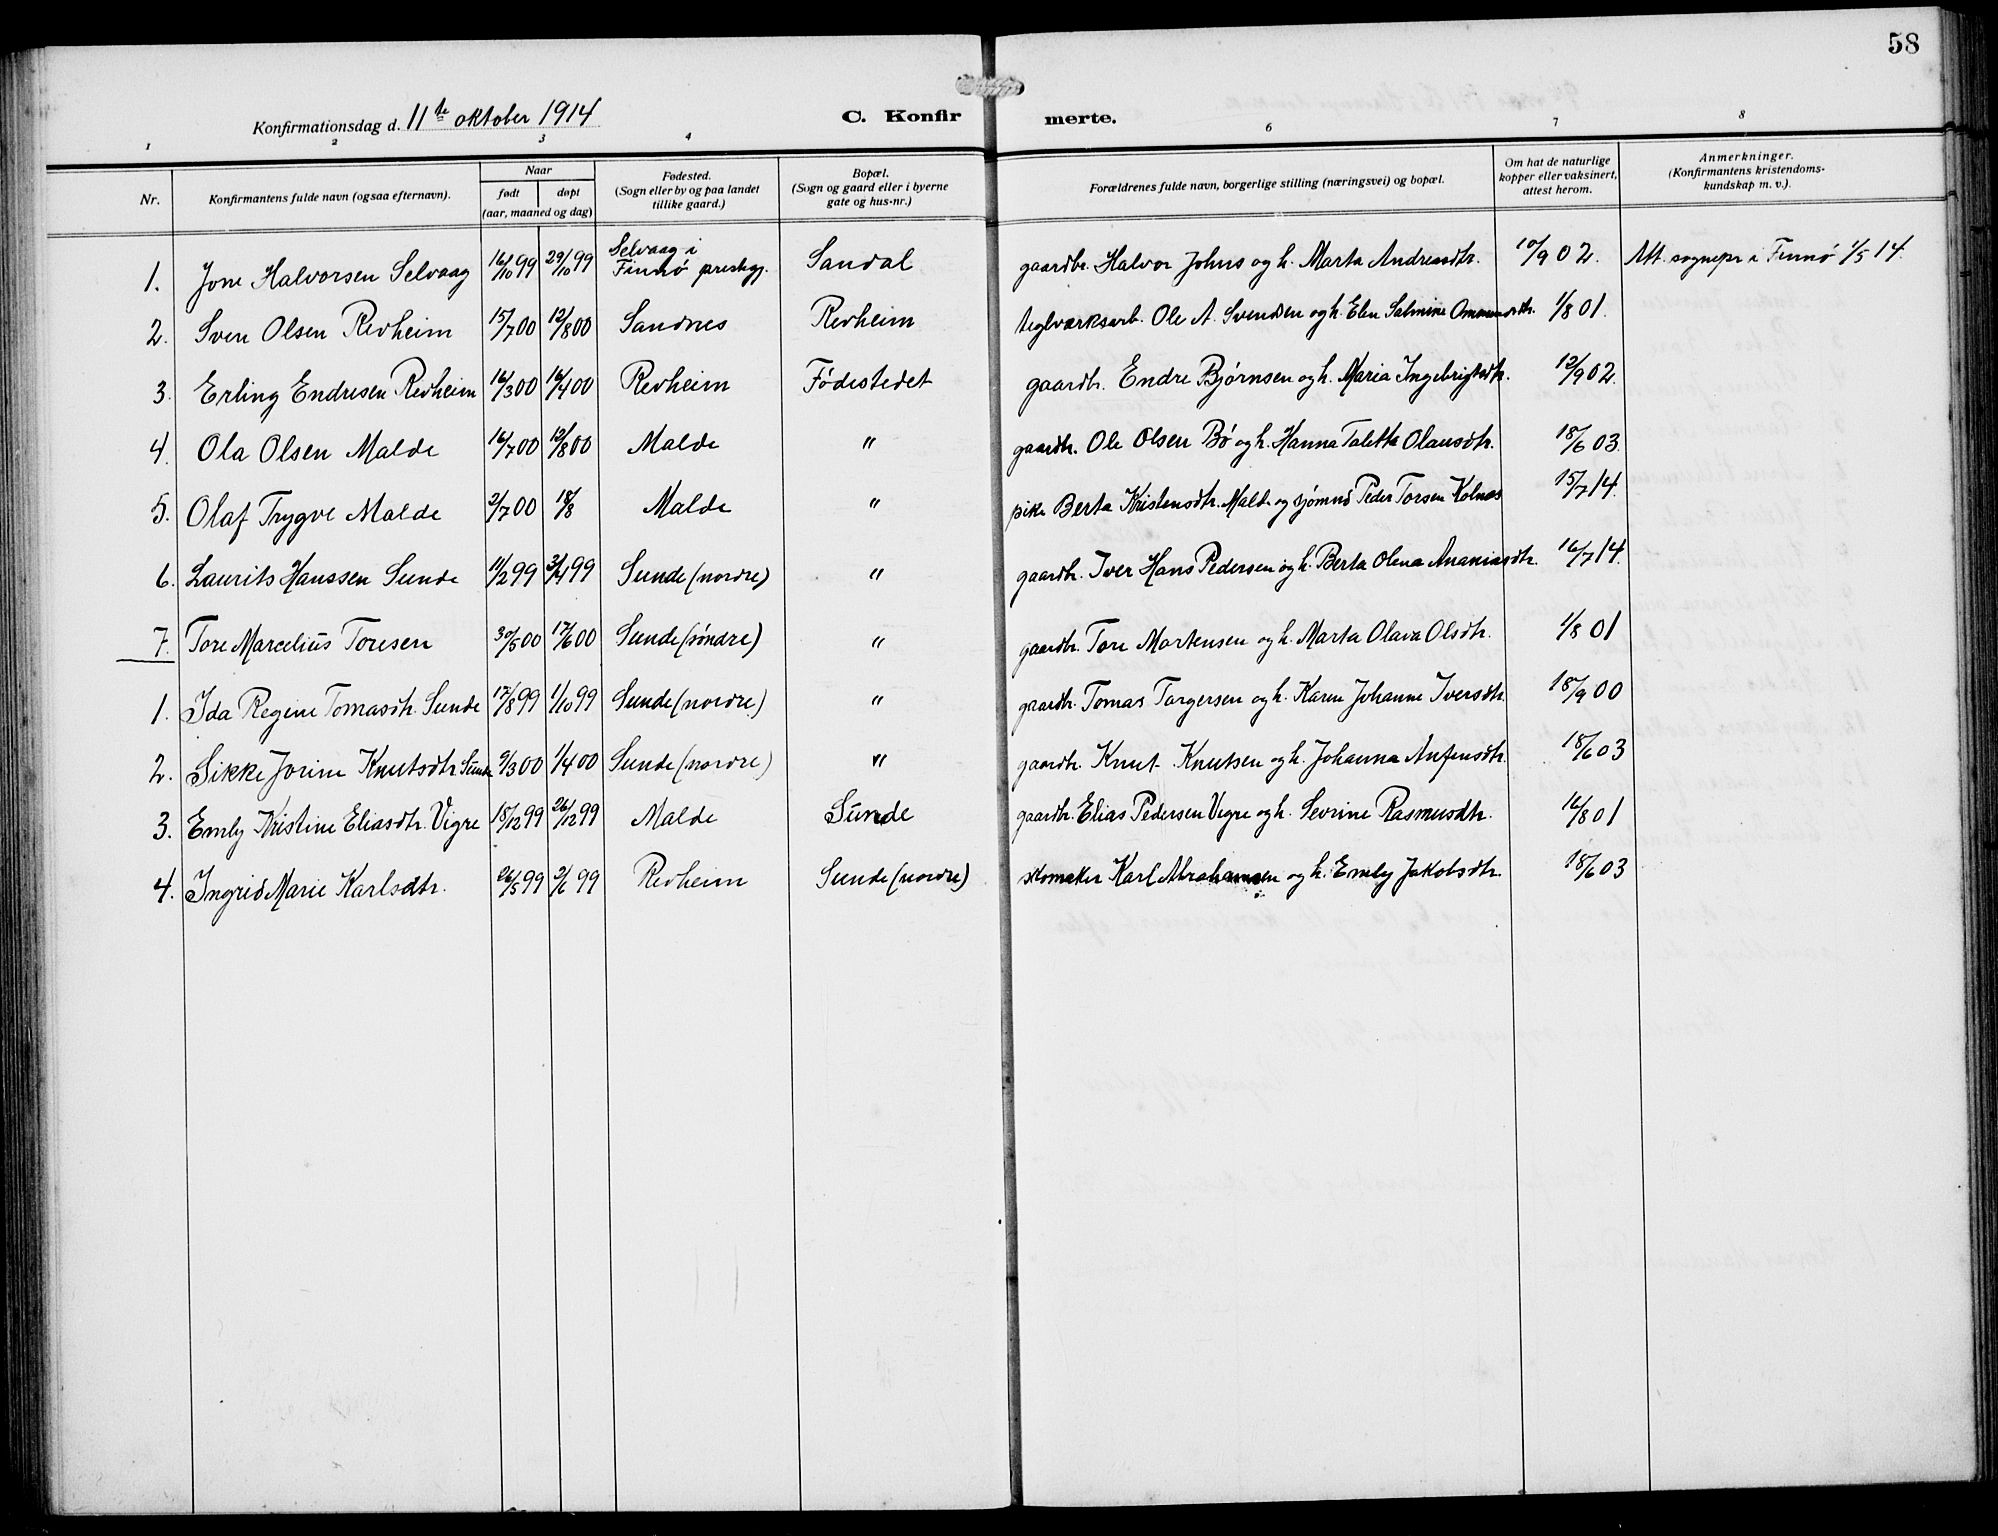 58
Konfirmationsdag d. 11te oktober 1914
C. Konfirmerte.
1 2 3 4 6 7 8
Nr. Konfirmantens fulde navn (ogsaa efternavn). Naar født døpt (aar, maaned og dag) Fødested. (Sogn eller by og paa landet tillike gaard.) Bopæl. (Sogn og gaard eller i byerne gate og hus-nr.) Forældrenes fulde navn, borgerlige stilling (næringsvei) og bopæl. Om hat de naturlige kopper eller vaksinert, attest herom. Anmerkninger. (Konfirmantens kristendomskundskap m. v.).
1. Jone Halvorsen Selvaag 16/10 99 29/10 99 Selvaag i Finnø prestgj. Sandal gaardbr. Halvor Johns og h. Marta Andreasdtr. 10/9 02. Att. sognepr i Finnø 1/5 14.
2. Sven Olsen Revheim 15/7 00 12/8 00 Sandnes Revheim teglværksarb. Ole A. Svendsen og h. Elen Salmine Ommundsdtr. 1/8 01.
3. Erling Endresen Revheim 16/3 00 16/4 00 Revheim Fødestedet gaardbr. Endre Bjørnsen og h. Maria Ingebrigtsdtr. 12/9 02.
4. Ola Olsen Malde 16/7 00 12/8 00 Malde " gaardbr. Ole Olsen Bø og h. Hanna Taletta Olausdtr. 18/6 03.
5. Olaf Trygve Malde 2/7 00 18/8 Malde " pike Berta Kristensdtr. Malde og sjømnd Peder Torsen Kolnes 15/7 14.
6. Laurits Hanssen Sunde 11/2 99 3/4 99 Sunde (nordre) " gaardbr. Iver Hans Pedersen og h. Berta Olena Ananiasdtr. 16/7 14.
7. Tore Marcelius Toresen 30/5 00 17/6 00 Sunde (søndre) " gaardbr. Tore Mortensen og h. Marta Olava Olsdtr. 1/8 01
1. Ida Regine Tomasdtr. Sunde 17/8 99 1/10 99 Sunde (nordre) " gaardbr. Tomas Torgersen og h. Karen Johanne Iversdtr. 18/9 00
2. Sikke Jorine Knutsdtr Sunde 9/3 00 1/4 00 Sunde (nordre) " gaardbr. Knut Knutsen og h. Johanna Anfensdtr. 18/6 03
3. Emly Kristine Eliasdtr. Vigre 18/12 99 26/12 99 Malde Sunde gaardbr. Elias Pedersen Vigre og h. Sevrine Rasmusdtr. 16/8 01
4. Ingrid Marie Karlsdtr. 26/5 99 2/6 99 Revheim Sunde (nordre) skomaker Karl Abrahamsen og h. Emly Jakobsdtr. 18/6 03